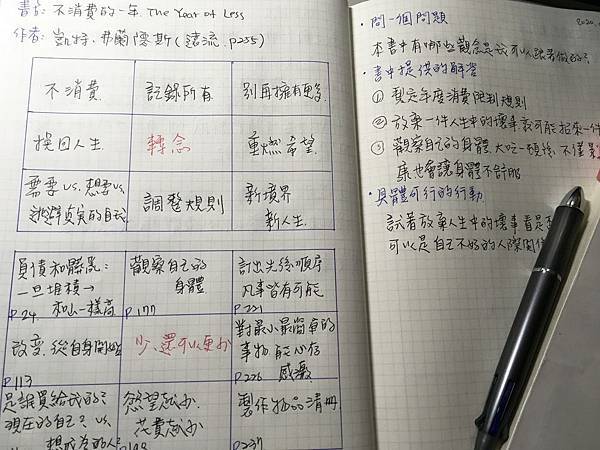 書名: 不消費的一年 The Year of Less
作者: 凱特.弗蘭德斯(遠流. p255)
不消費
記錄所有
別再擁有更多
換回人生
轉念
重燃希望
需要 vs. 想要 vs.
選擇真實的自我
調整規則
新境界
新人生
負債和髒亂:
一旦堆積→
p24. 和山一樣高
觀察自己的
身體
p177
訂出先後順序
凡事皆有可能
p221
改變.從自身開始
p113
少、還可以更少
對最小最簡單的
事物 能心存
p226 感激
是誰買給我的?
現在的自己? vs.
想成為的人
慾望越少.
花費越少
製作物品清冊
p237
2020.
・問一個問題
本書中有哪些觀念是我可以跟著做的?
・書中提供的解答
① 製定年度消費限制規則
② 放棄一件人生中的壞事就可能招來一件
③ 觀察自己的身體 大吃一頓後,不僅
康也會讓身體不舒服
・具體可行的行動
試著放棄人生中的壞事看是否
可以是自己不好的人際關係